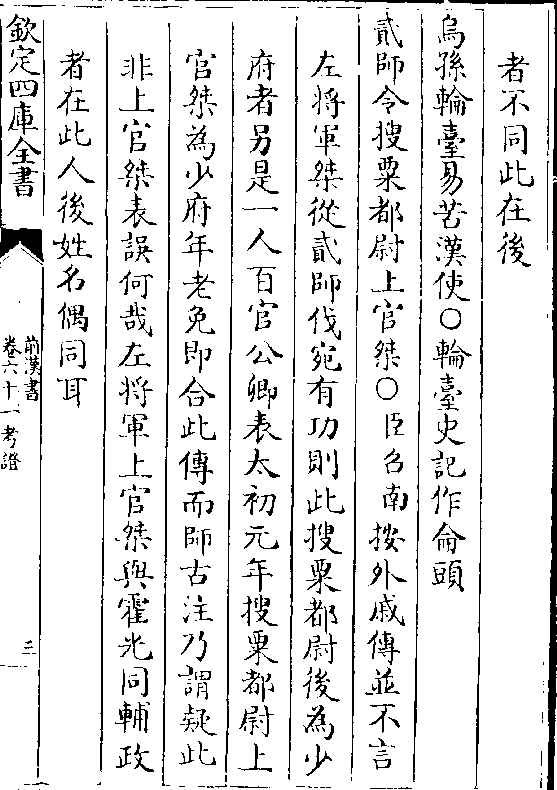 者不同此在後
烏孫輪臺易苦漢使○輪臺史記作侖頭
貳師令搜粟都尉上官桀○臣召南按外戚傳並不言
左將軍桀從貳師伐宛有功則此搜粟都尉後為少
府者另是一人百官公卿表太初元年搜粟都尉上
官桀為少府年老免即合此傳而師古注乃謂疑此
非上官桀表誤何哉左將軍上官桀與霍光同輔政
者在此人後姓名偶同耳
欽定四庫全書
前漢書
卷六十一考證
三